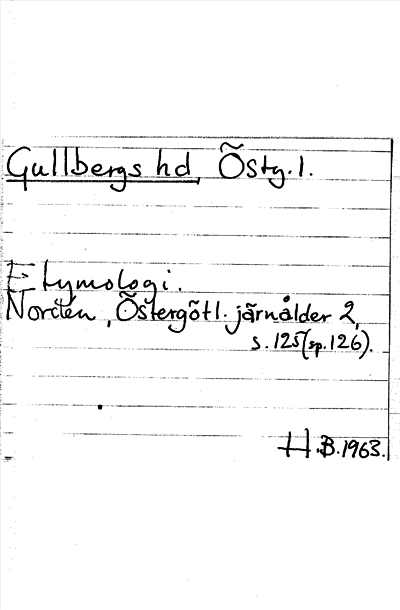 Gullbergs hd, Östg. l.
Etymologi.
Nordén, Östergötl. järnålder 2,
s. 125 (sp. 126).
H.B. 1963.